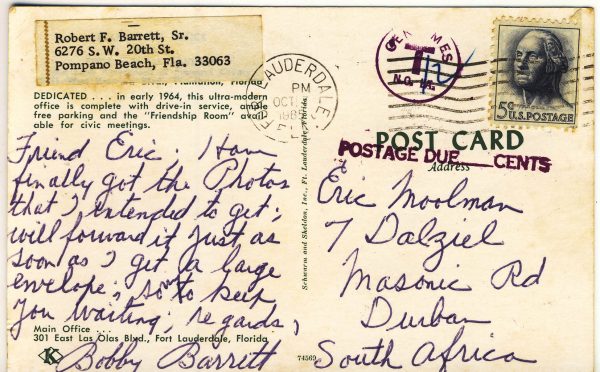 Robert F. Barrett, Sr.
6276 S. W. 20th St.
Pompano Beach, Fla. 33063
Plantation, Florida
DEDICATED . . . in early 1964, this ultra-modern
office is complete with drive-in service, ample
free parking and the "Friendship Room" avail-
able for civic meetings.
Friend Eric. I have
finally got the Photos
that I intended to get;
will forward it just as
soon as I get a large
envelope; sorry to keep
you waiting; regards,
Bobby Barrett
Main Office . . .
301 East Las Olas Blvd., Fort Lauderdale, Florida
K
74569
Schwarm and Sheldon, Inc., Ft. Lauderdale, Florida
FT. LAUDERDALE,
PM
OCT
T
N.O. LA.
5¢ U.S. POSTAGE
POST CARD
Address
POSTAGE DUE CENTS
Eric Moolman
7 Dalziel
Masonic Rd
Durban
South Africa